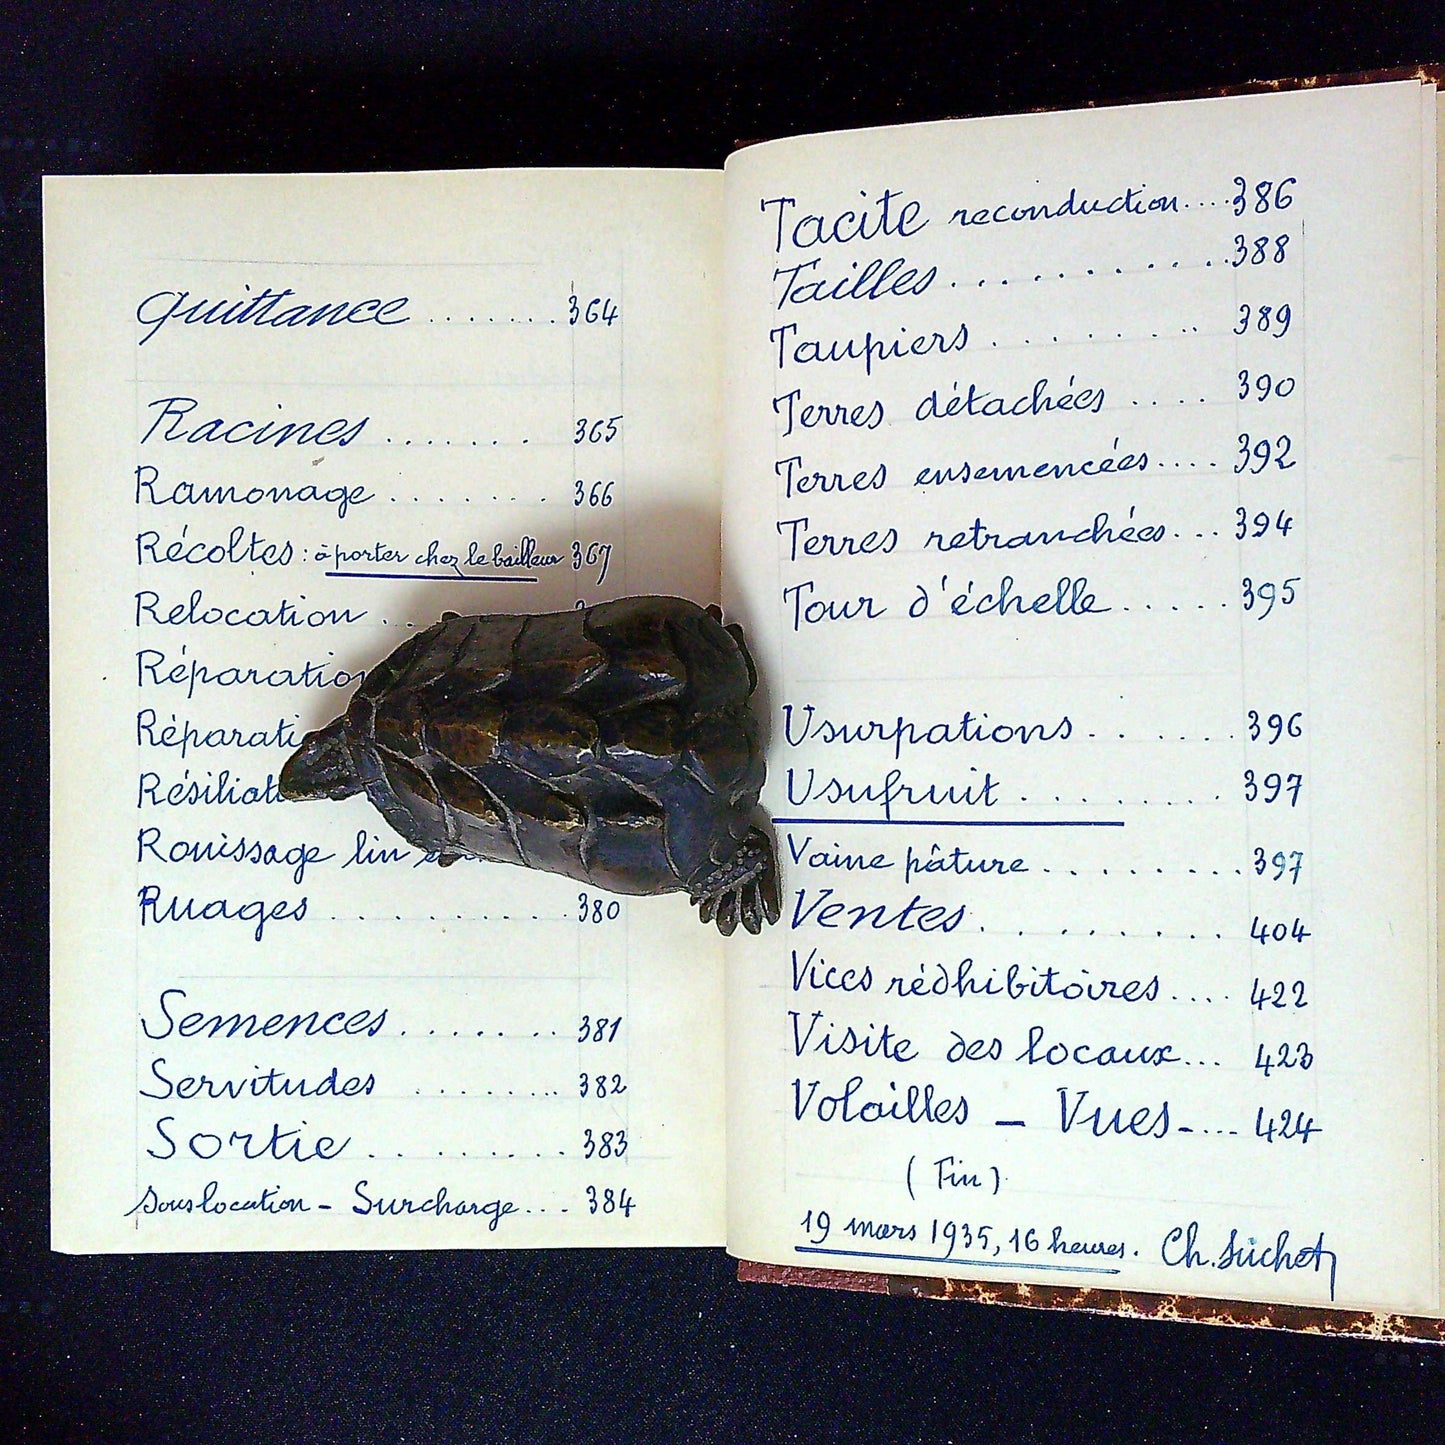 Quittance ....... 364
Racines ....... 365
Ramonage ....... 366
Récoltes : à porter chez le bailleur 367
Relocation ..
Réparatio
Réparati
Résiliat
Rouissage lin
Ruages ......... 380
Semences ....... 381
Servitudes ....... 382
Sortie ........ 383
Souslocation - Surcharge... 384
Tacite reconduction .... 386
Tailles ........... 388
Taupiers ....... 389
Terres détachées .... 390
Terres ensemencées .... 392
Terres retranchées ... 394
Tour d'échelle ..... 395
Usurpations ...... 396
Usufruit ........ 397
Vaine pâture ......... 397
Ventes ......... 404
Vices rédhibitoires .... 422
Visite des locaux ... 423
Volailles - Vues .... 424
(Fin)
19 mars 1935, 16 heures. Ch. Suchet